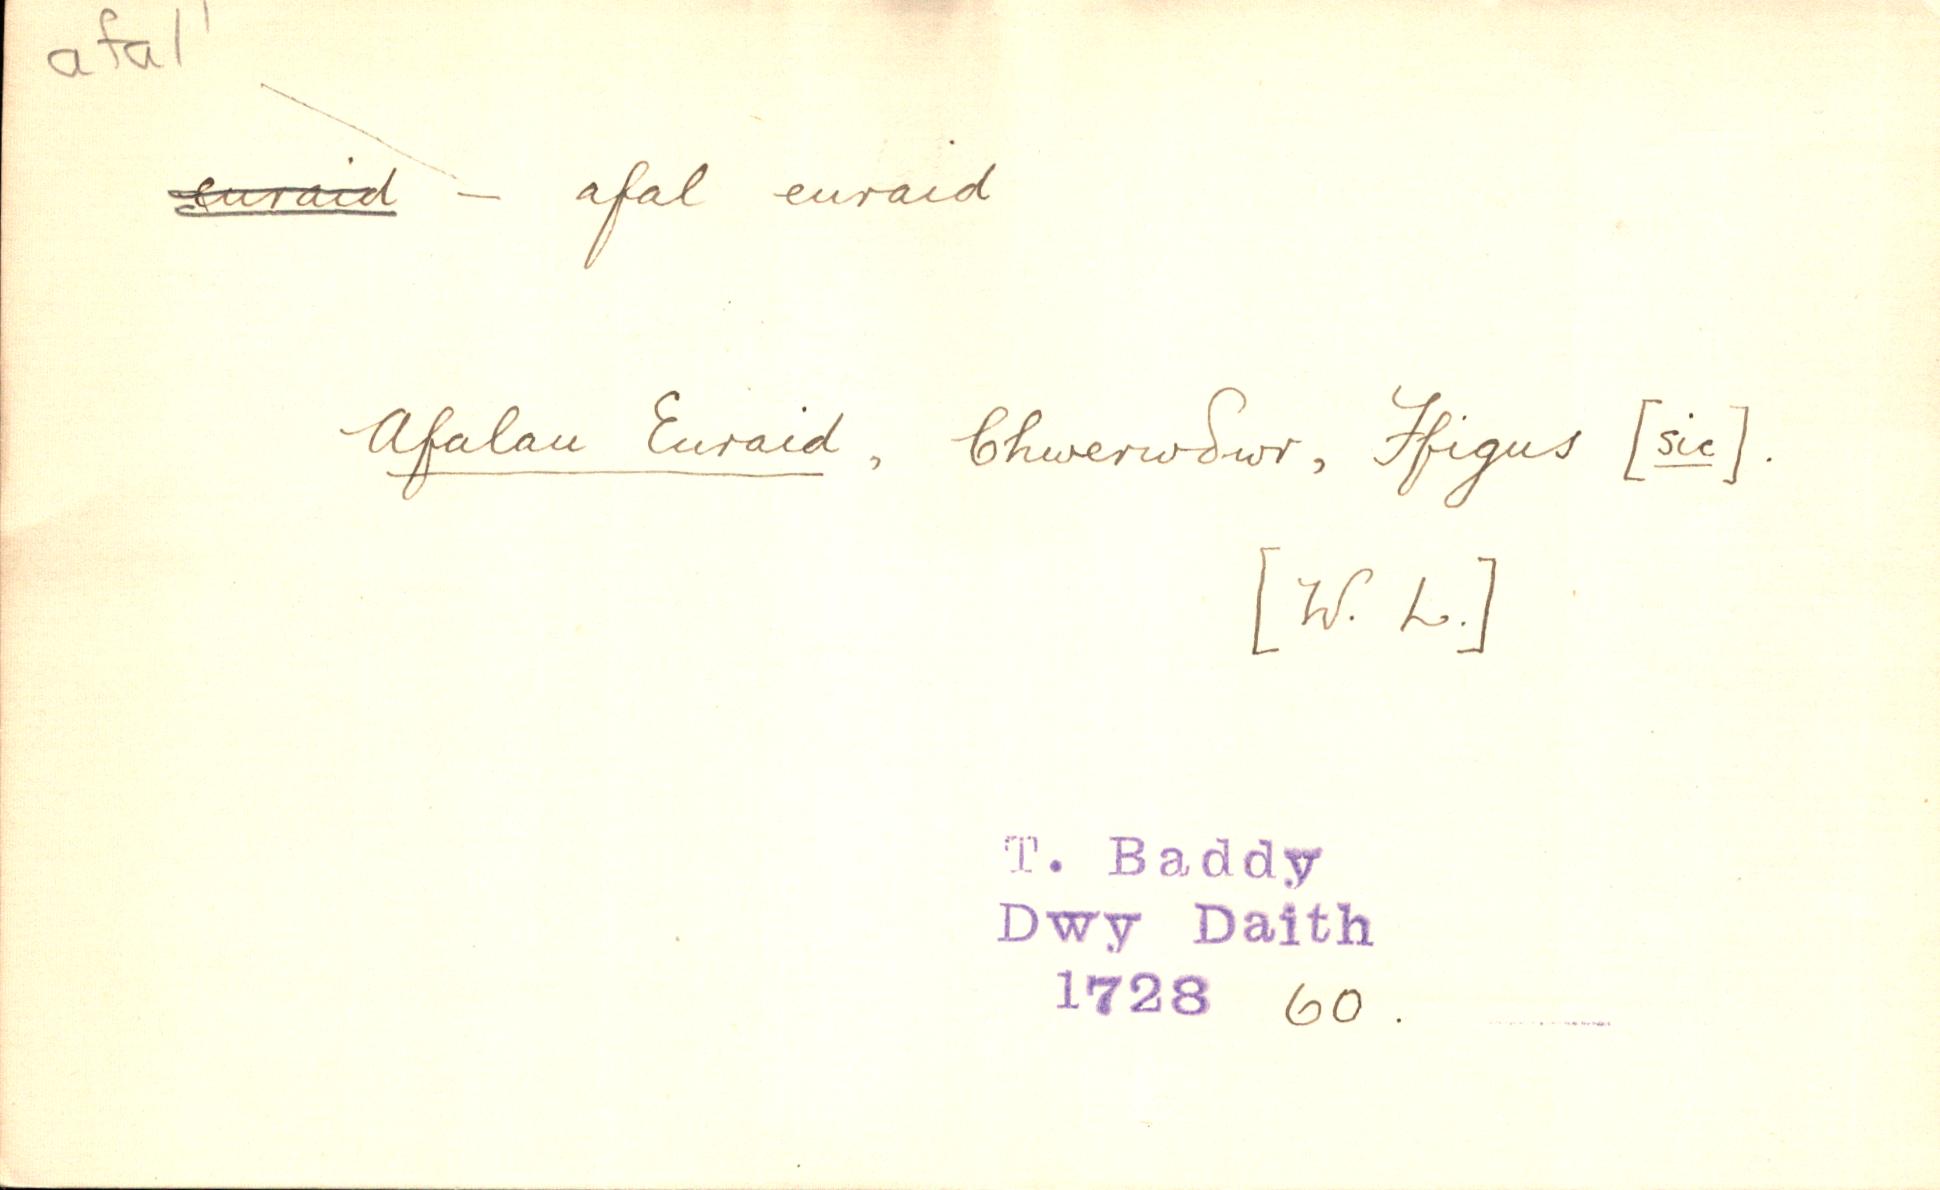 afal'
euraid — afal euraid
Afalau Euraid, Chwerwδwr, Ffigus [sic].
[W. L.]
T. Baddy
Dwy Daith
1728 60.